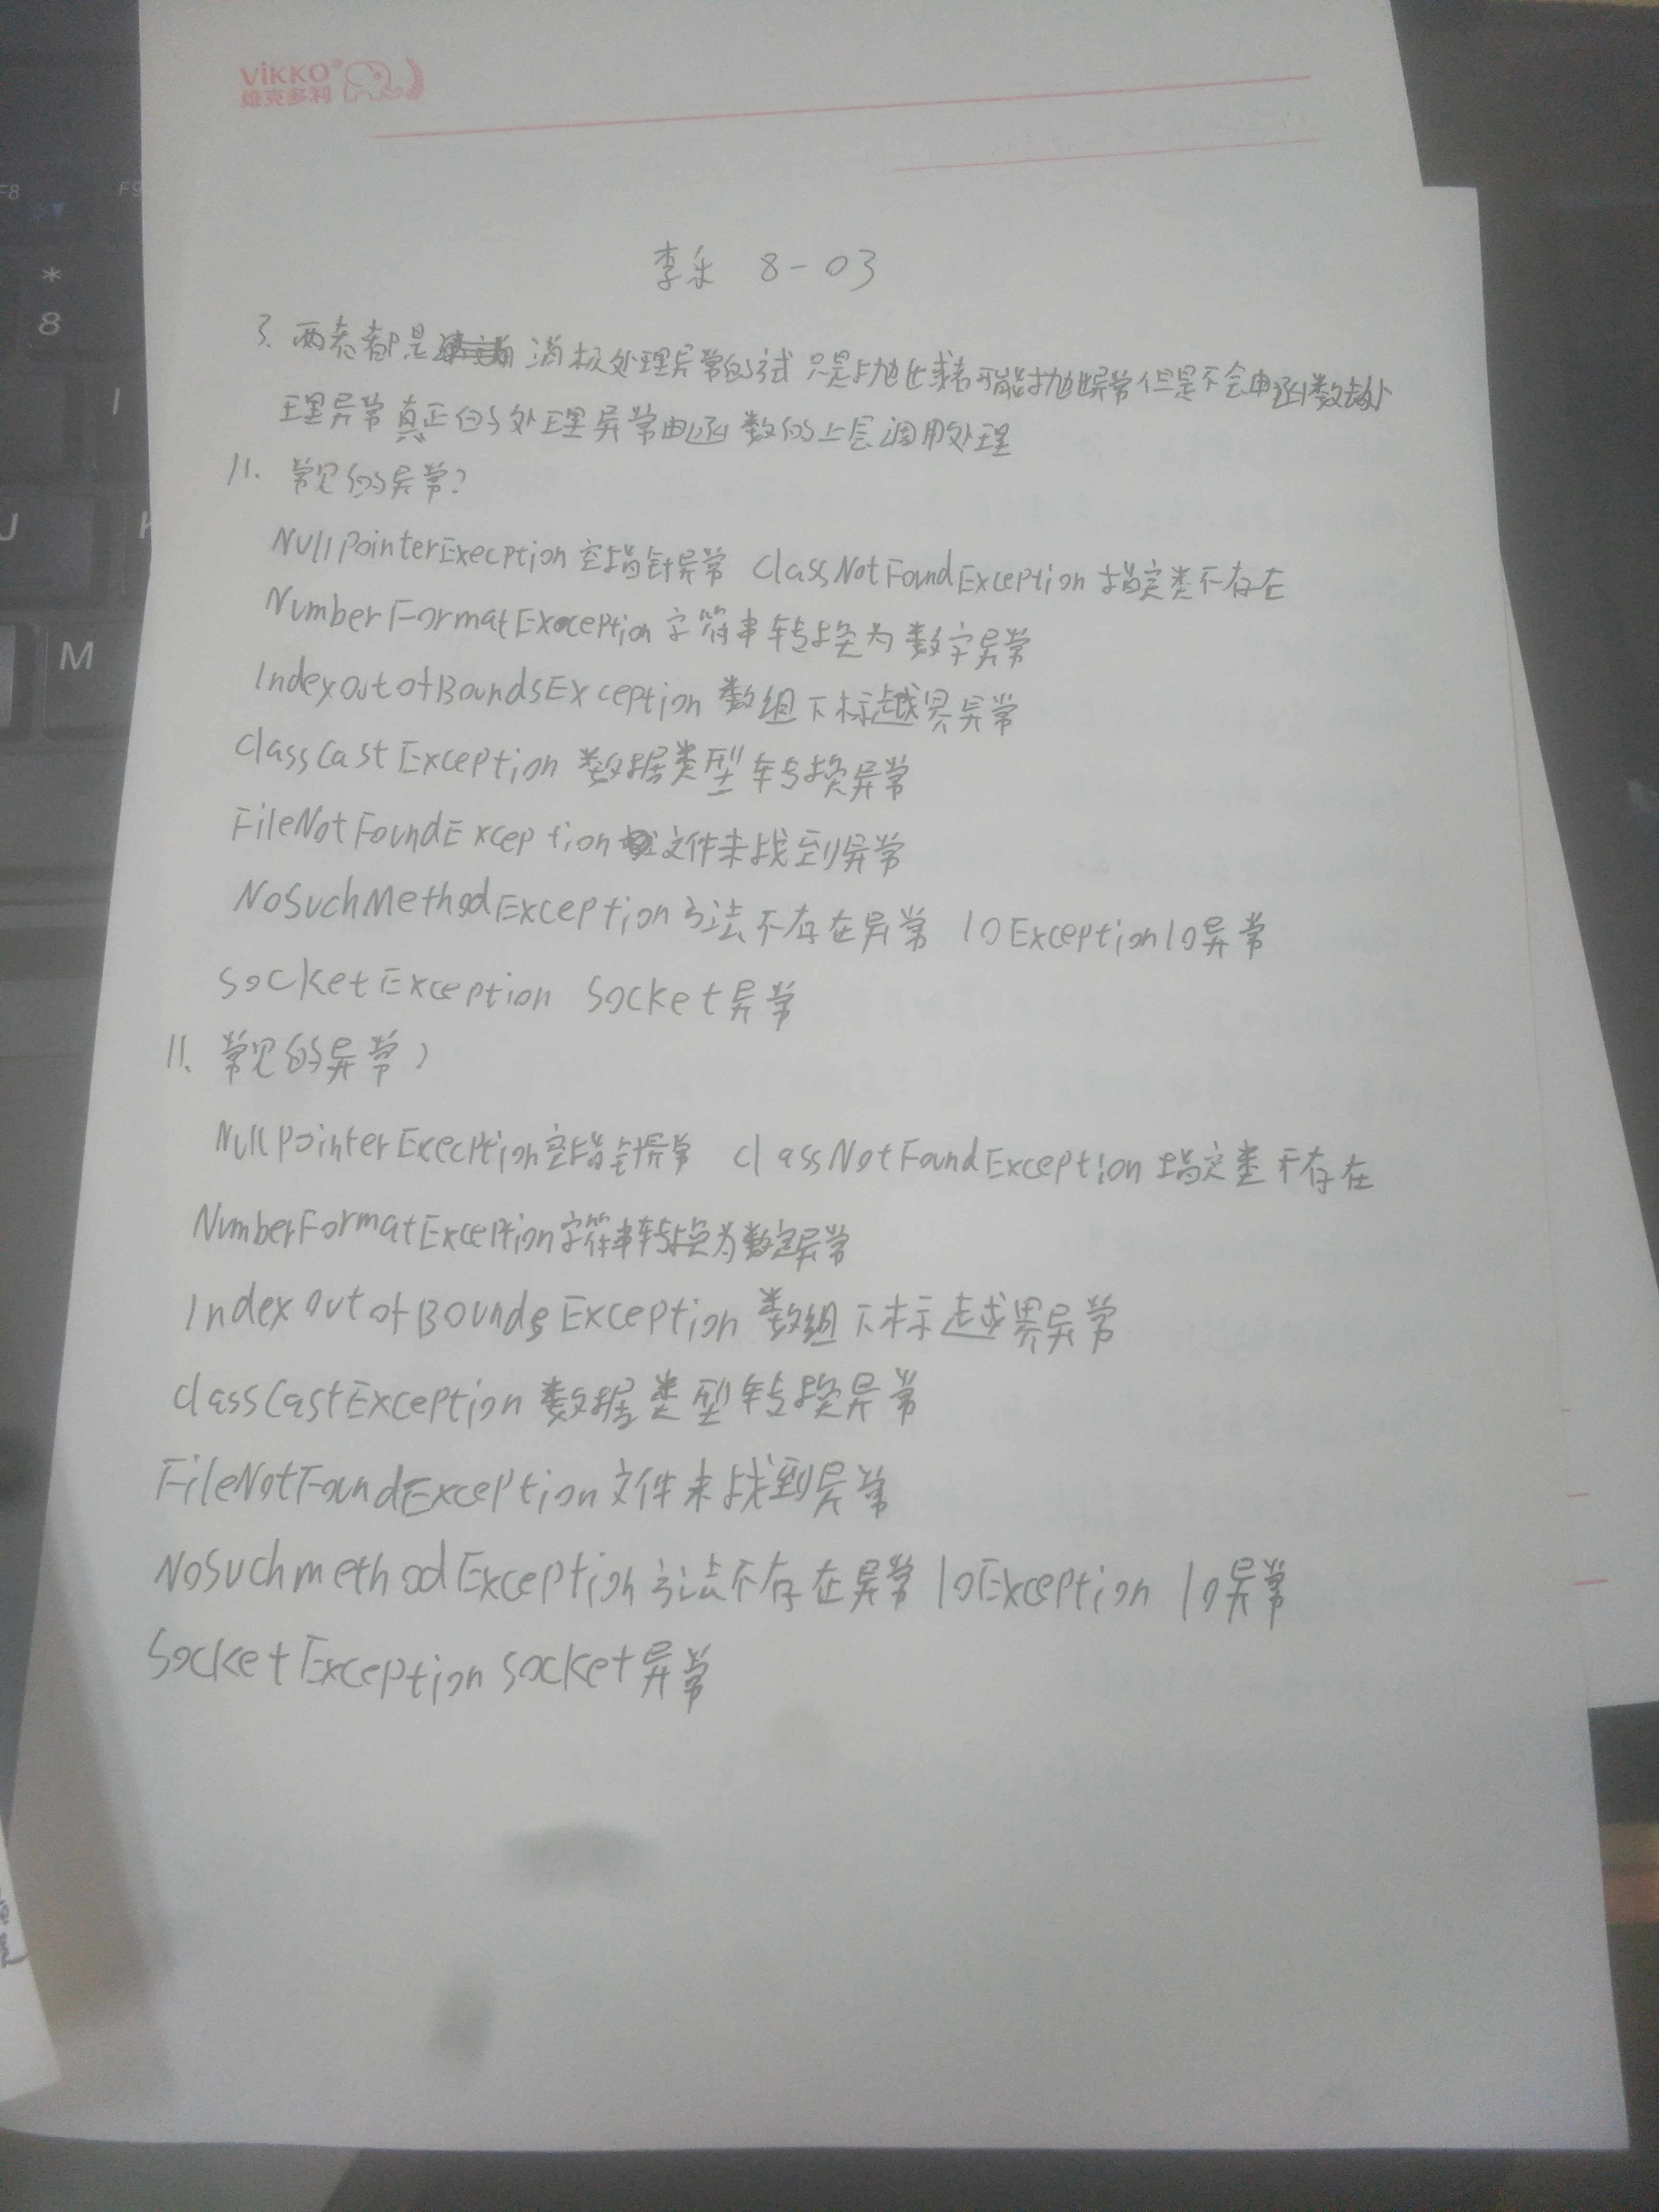 ViKKO®
维克多利
李乐 8-03
3. 两者都是 消极处理异常的试 只是抛出或者可能抛出异常但是不会由函数去处
理异常真正的处理异常由函数的上层调用处理
11. 常见的异常?
NullPointerExecption 空指针异常 ClassNotFoundException 指定类不存在
NumberFormatException 字符串转换为数字异常
IndexoutofBoundsException 数组下标越界异常
ClassCastException 数据类型转换异常
FileNotFoundException 文件未找到异常
NoSuchMethodException 方法不存在异常 IOException IO异常
SocketException Socket异常
11. 常见的异常?
NullPointerExecption 空指针异常 classNotFoundException 指定类不存在
NumberFormatException 字符串转换为数字异常
IndexoutofBoundsException 数组下标越界异常
classCastException 数据类型转换异常
FileNotFoundException 文件未找到异常
NoSuchmethodException 方法不存在异常 IOException IO异常
SocketException socket异常
F8
F9
*
8
I
J
K
M